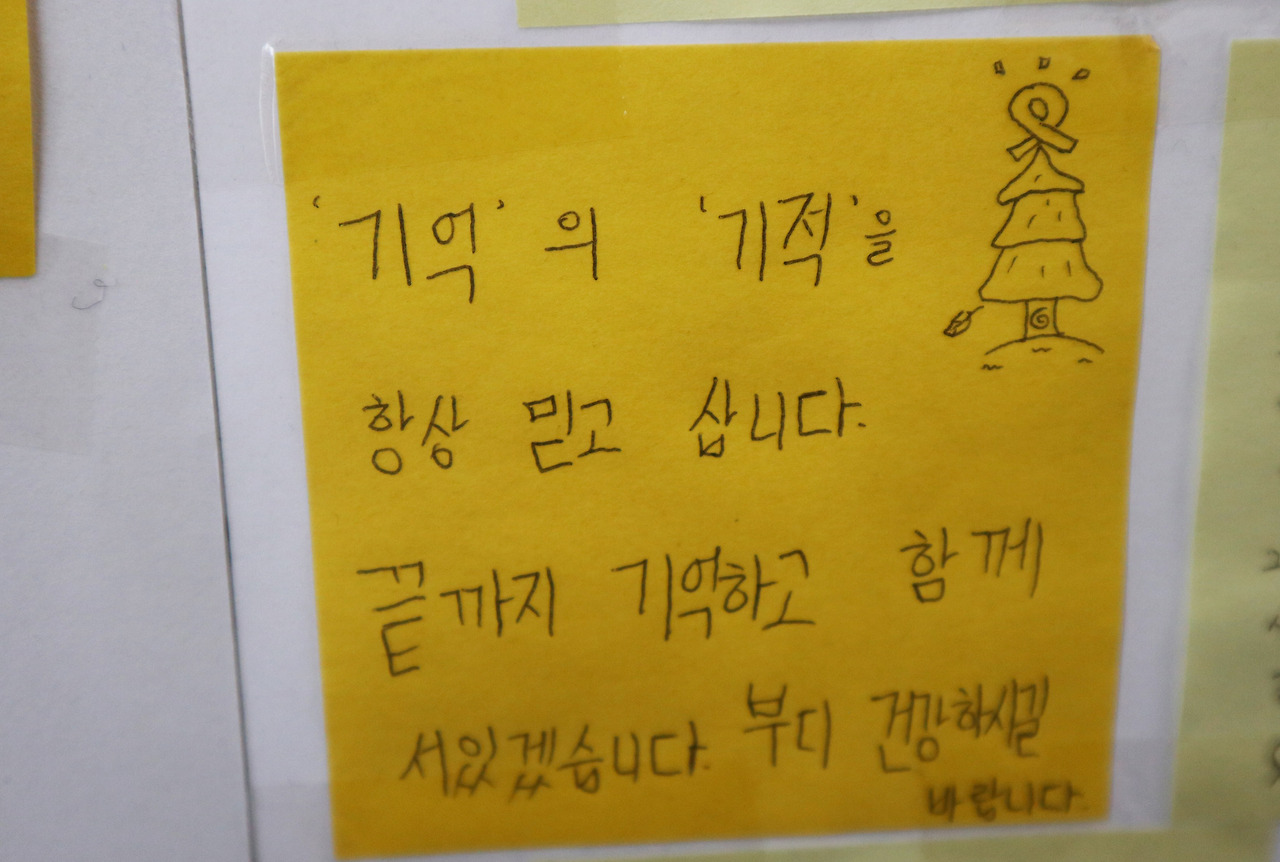 '기억'의 '기적'을
항상 믿고 삽니다.
끝까지 기억하고 함께
서있겠습니다. 부디 건강하시길
바랍니다.